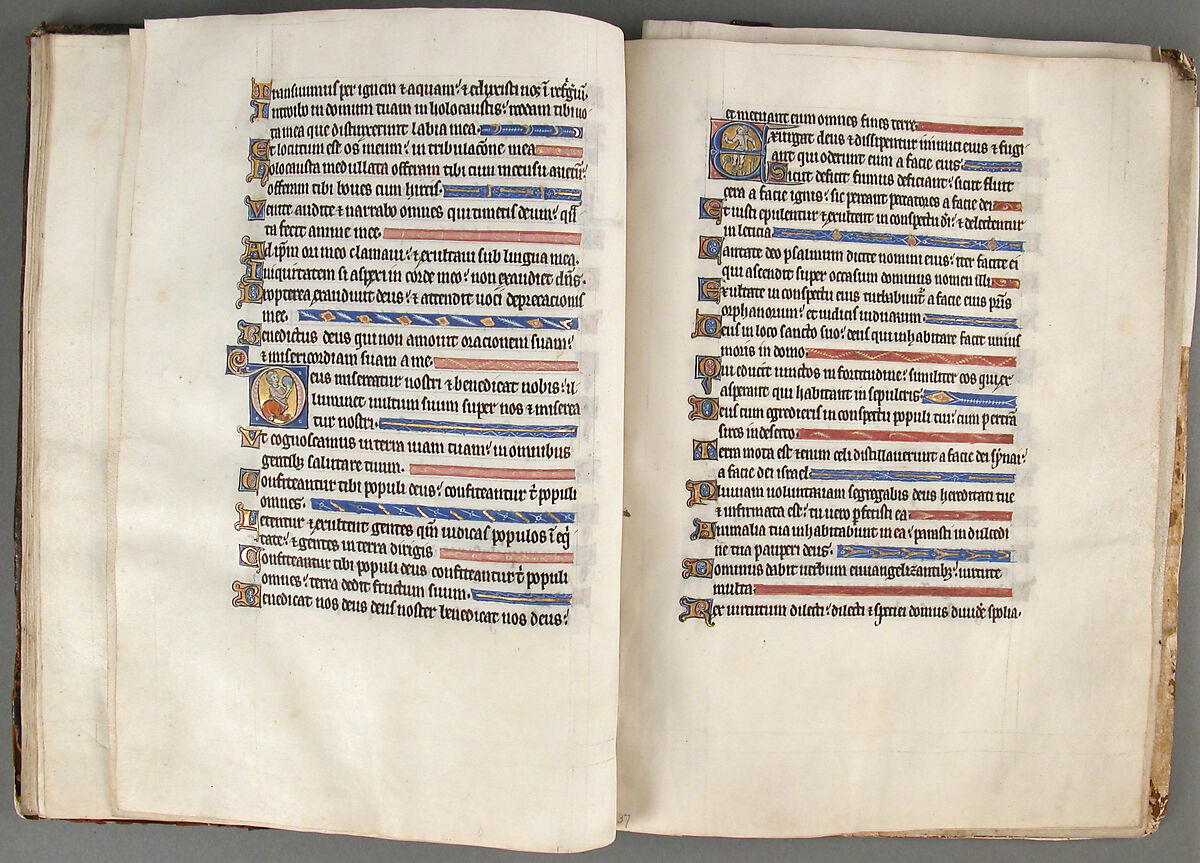 Transiuimus per ignem & aquam: & eduxisti nos ī refrigiū.
Introibo in domum tuam in holocaustis: reddam tibi uo
ta mea que distinxerunt labia mea.
Et locutum est os meum: in tribulacōne mea
Holocausta medullata offeram tibi cum incensu arietū:
offeram tibi boues cum hircis.
Venite audite & narrabo omnes qui timetis deum: q̄nta
fecit anime mee.
Ad ipm̄ ore meo clamaui: & exultaui sub lingua mea.
Iniquitatem si aspexi in corde meo: non exaudiet dn̄s.
Propterea exaudiuit deus: & attendit uoci deprecacionis
mee.
Benedictus deus qui non amouit oracionem suam:
& misericordiam suam a me.
Deus misereatur nostri & benedicat nobis: il
luminet uultum suum super nos & miserea
tur nostri.
Vt cognoscamus in terra uiam tuam: in omnibus
gentibȝ salutare tuum.
Confiteantur tibi populi deus: confiteantur t̄ populi
omnes.
Letentur & exultent gentes qm̄ iudicas populos ī eq̇
tate: & gentes in terra dirigis
Confiteantur tibi populi deus confiteantur t̄ populi
omnes: terra dedit fructum suum.
Benedicat nos deus deus noster benedicat nos deus:
et metuant eum omnes fines terre
Exurgat deus & dissipentur inimici eius & fugi
ant qui oderunt eum a facie eius.
Sicut deficit fumus deficiant: sicut fluit
cera a facie ignis: sic pereant peccatores a facie dei
Et iusti epulentur & exultent in conspectu dei: & delectentur
in leticia
Cantate deo psalmum dicite nomini eius: iter facite ei
qui ascendit super occasum dominus nomen illi
Exultate in conspectu eius turbabunt̄ a facie eius pr̄is
orphanorum: et iudicis uiduarum.
Deus in loco sancto suo: deus qui inhabitare facit unius
moris in domo.
Qui educit uinctos in fortitudine: similiter eos qui ex
asperant qui habitant in sepulcris.
Deus cum egredieris in conspectu populi tui: cum pertrā
sires in deserto.
Terra mota est etenim celi distillauerunt a facie dei synai:
a facie dei israel.
Pluuiam uoluntariam segregabis deus hereditati tue
& infirmata est: tu uero pfecisti ea
Animalia tua inhabitabunt in ea: parasti in dulcedi
ne tua pauperi deus.
Dominus dabit uerbum euuangelizantibȝ: uirtute
multa.
Rex uirtutum dilecti: dilecti & speciei domus diuide spolia.
37